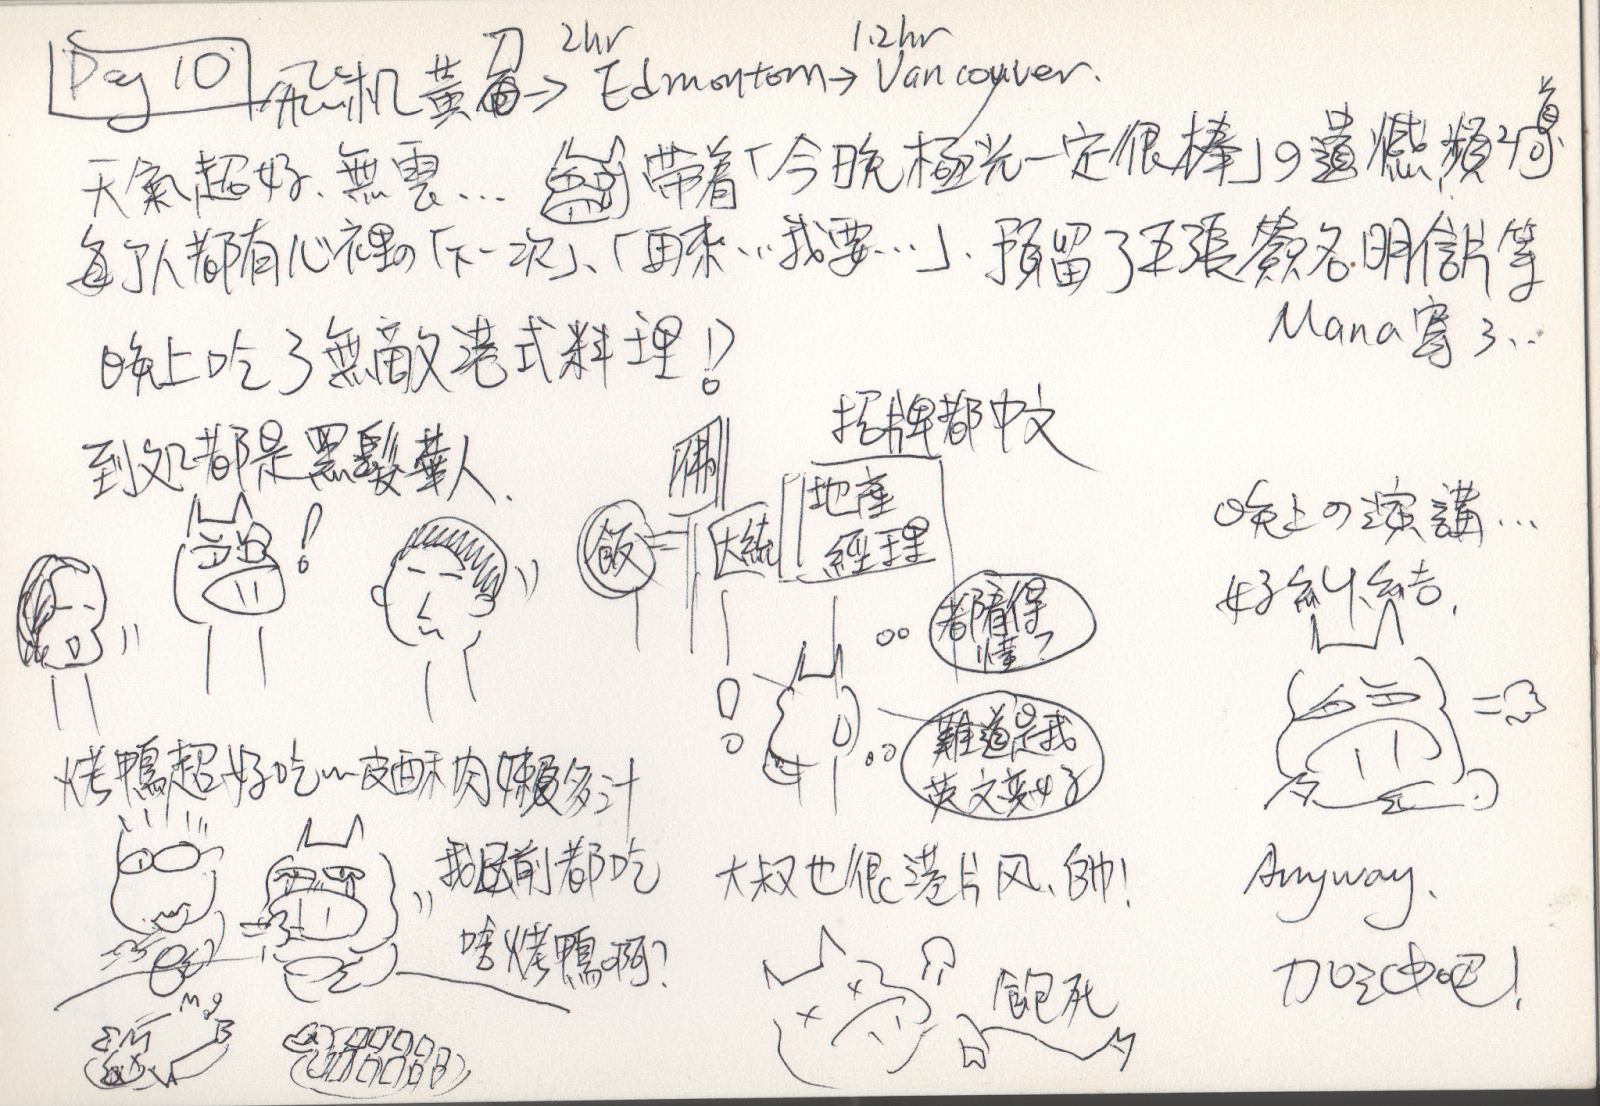 Day 10
飛机 黃刀 → Edmontom → Vancouver.
2hr 1.2hr
天氣超好、無雲... 帶着「今晚極光一定很棒」の遺憾頻頻
每个人都有心裡の「下一次」、「再來...我要...」、預留了五張簽名明信片等
Mana寄了...
晚上吃了無敵港式料理!?
到处都是黑髮華人.
!
招牌都中文
飯
大統
地產
經理
都看得
懂?
!
難道是我
英文變好
晚上の演講...
好糾結.
烤鴨超好吃~皮酥肉嫩多汁
我以前都吃
啥烤鴨啊?
大叔也很港片风、帥!
飽死
Anyway.
加油吧!